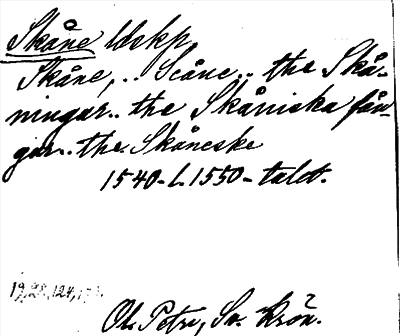 Skåne ldskp
Skåne, .. Scåne .. the Skå-
ningar .. the Skåniska fån-
gar .. the Skåneske
1540-t. 1550-talet.
19, 28, 124,
Ol. Petri, Sv. Krön.